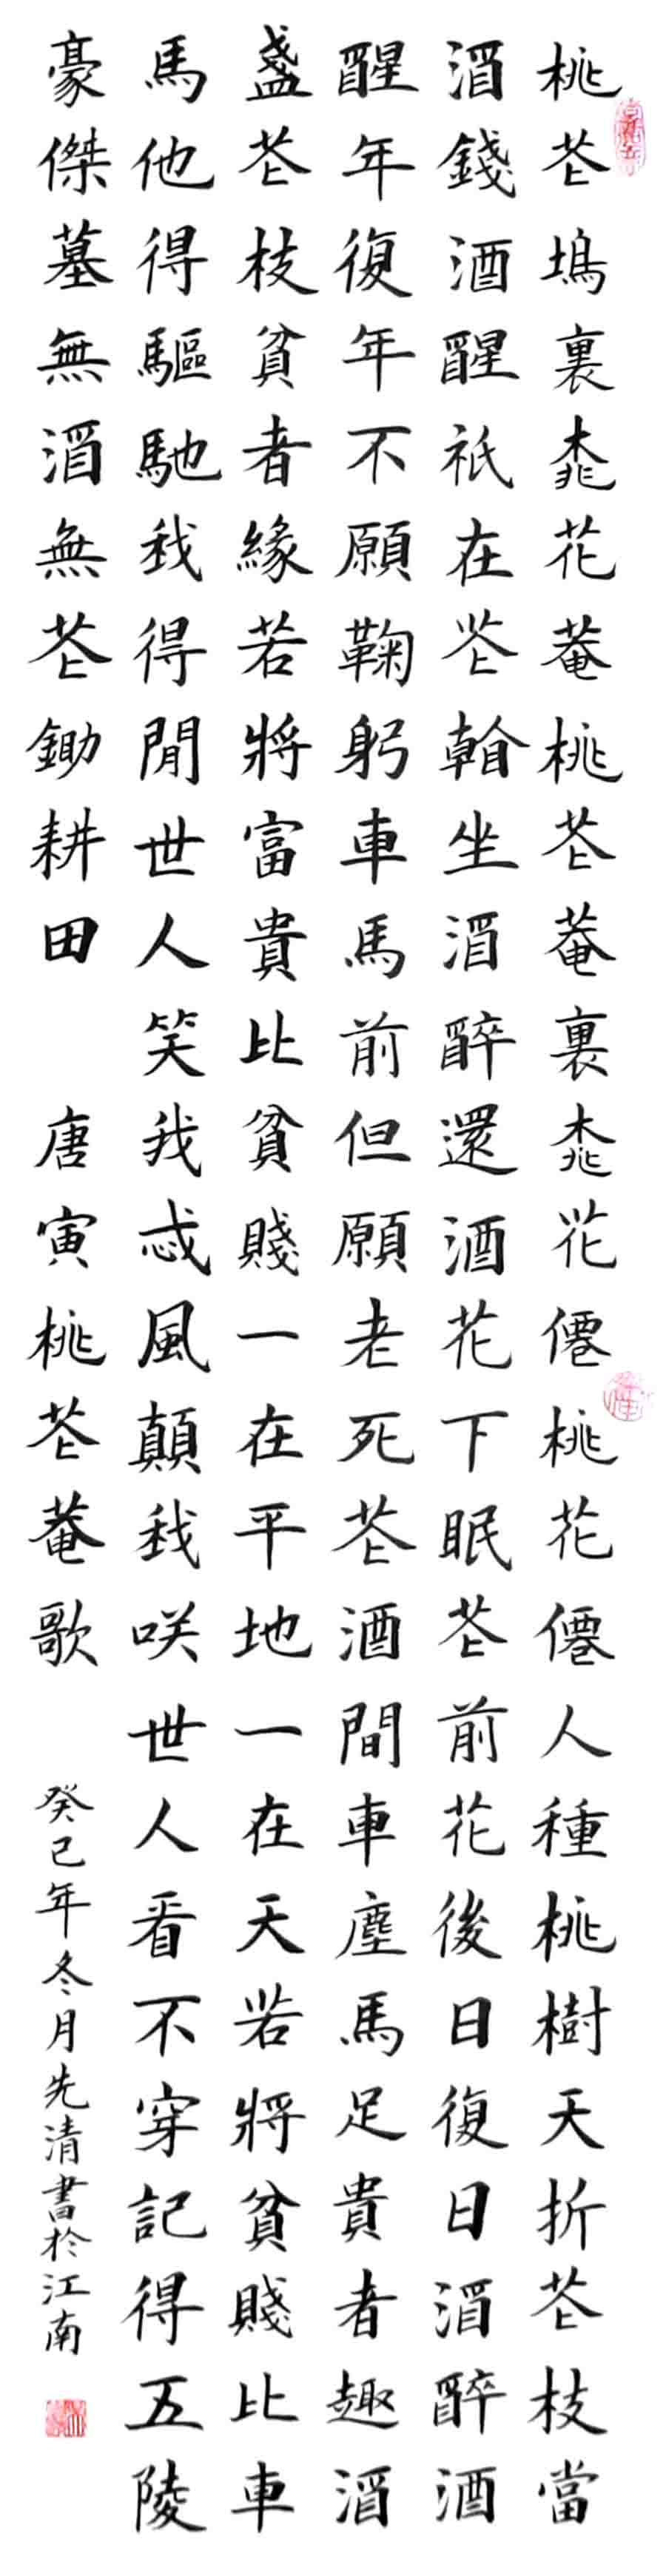 桃花塢裏桃花菴桃花菴裏桃花僊桃花僊人種桃樹天折花枝當
酒錢酒醒祇在花前坐酒醉還酒花下眠花前花後日復日酒醉酒
醒年復年不願鞠躬車馬前但願老死花酒間車塵馬足貴者趣酒
盞花枝貧者緣若將富貴比貧賤一在平地一在天若將貧賤比車
馬他得驅馳我得閒世人笑我忒風顛我咲世人看不穿記得五陵
豪傑墓無酒無花鋤耕田 唐寅桃花菴歌 癸巳年冬月先清書於江南